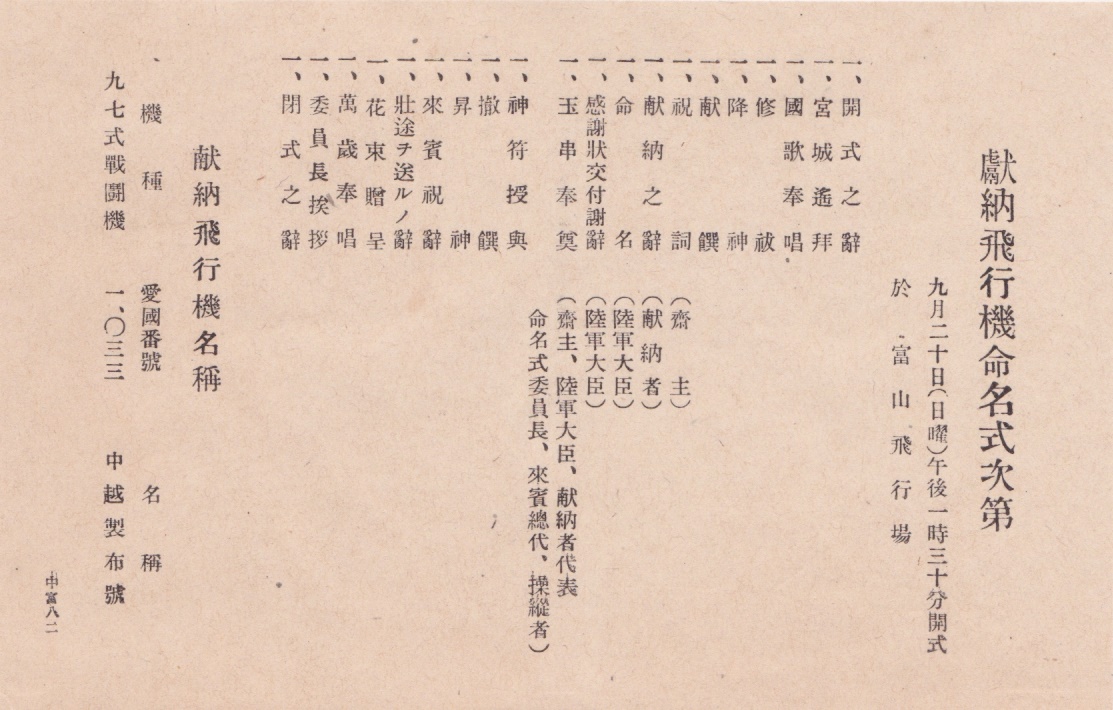 獻納飛行機命名式次第
九月二十日(日曜)午後一時三十分開式
於 富山飛行場
一、開式之辭
一、宮城遙拜
一、國歌奉唱
一、修祓
一、降神
一、献饌
一、祝詞 (齋主)
一、献納之辭 (献納者)
一、命名 (陸軍大臣)
一、感謝狀交付謝辭 (陸軍大臣)
一、玉串奉奠 (齋主、陸軍大臣、献納者代表
命名式委員長、來賓總代、操縱者)
一、神符授與
一、撤饌
一、昇神
一、來賓祝辭
一、壯途ヲ送ルノ辭
一、花束贈呈
一、萬歲奉唱
一、委員長挨拶
一、閉式之辭
献納飛行機名稱
機種 愛國番號 名稱
九七式戰鬪機 一、〇三三 中越製布號
中富八二